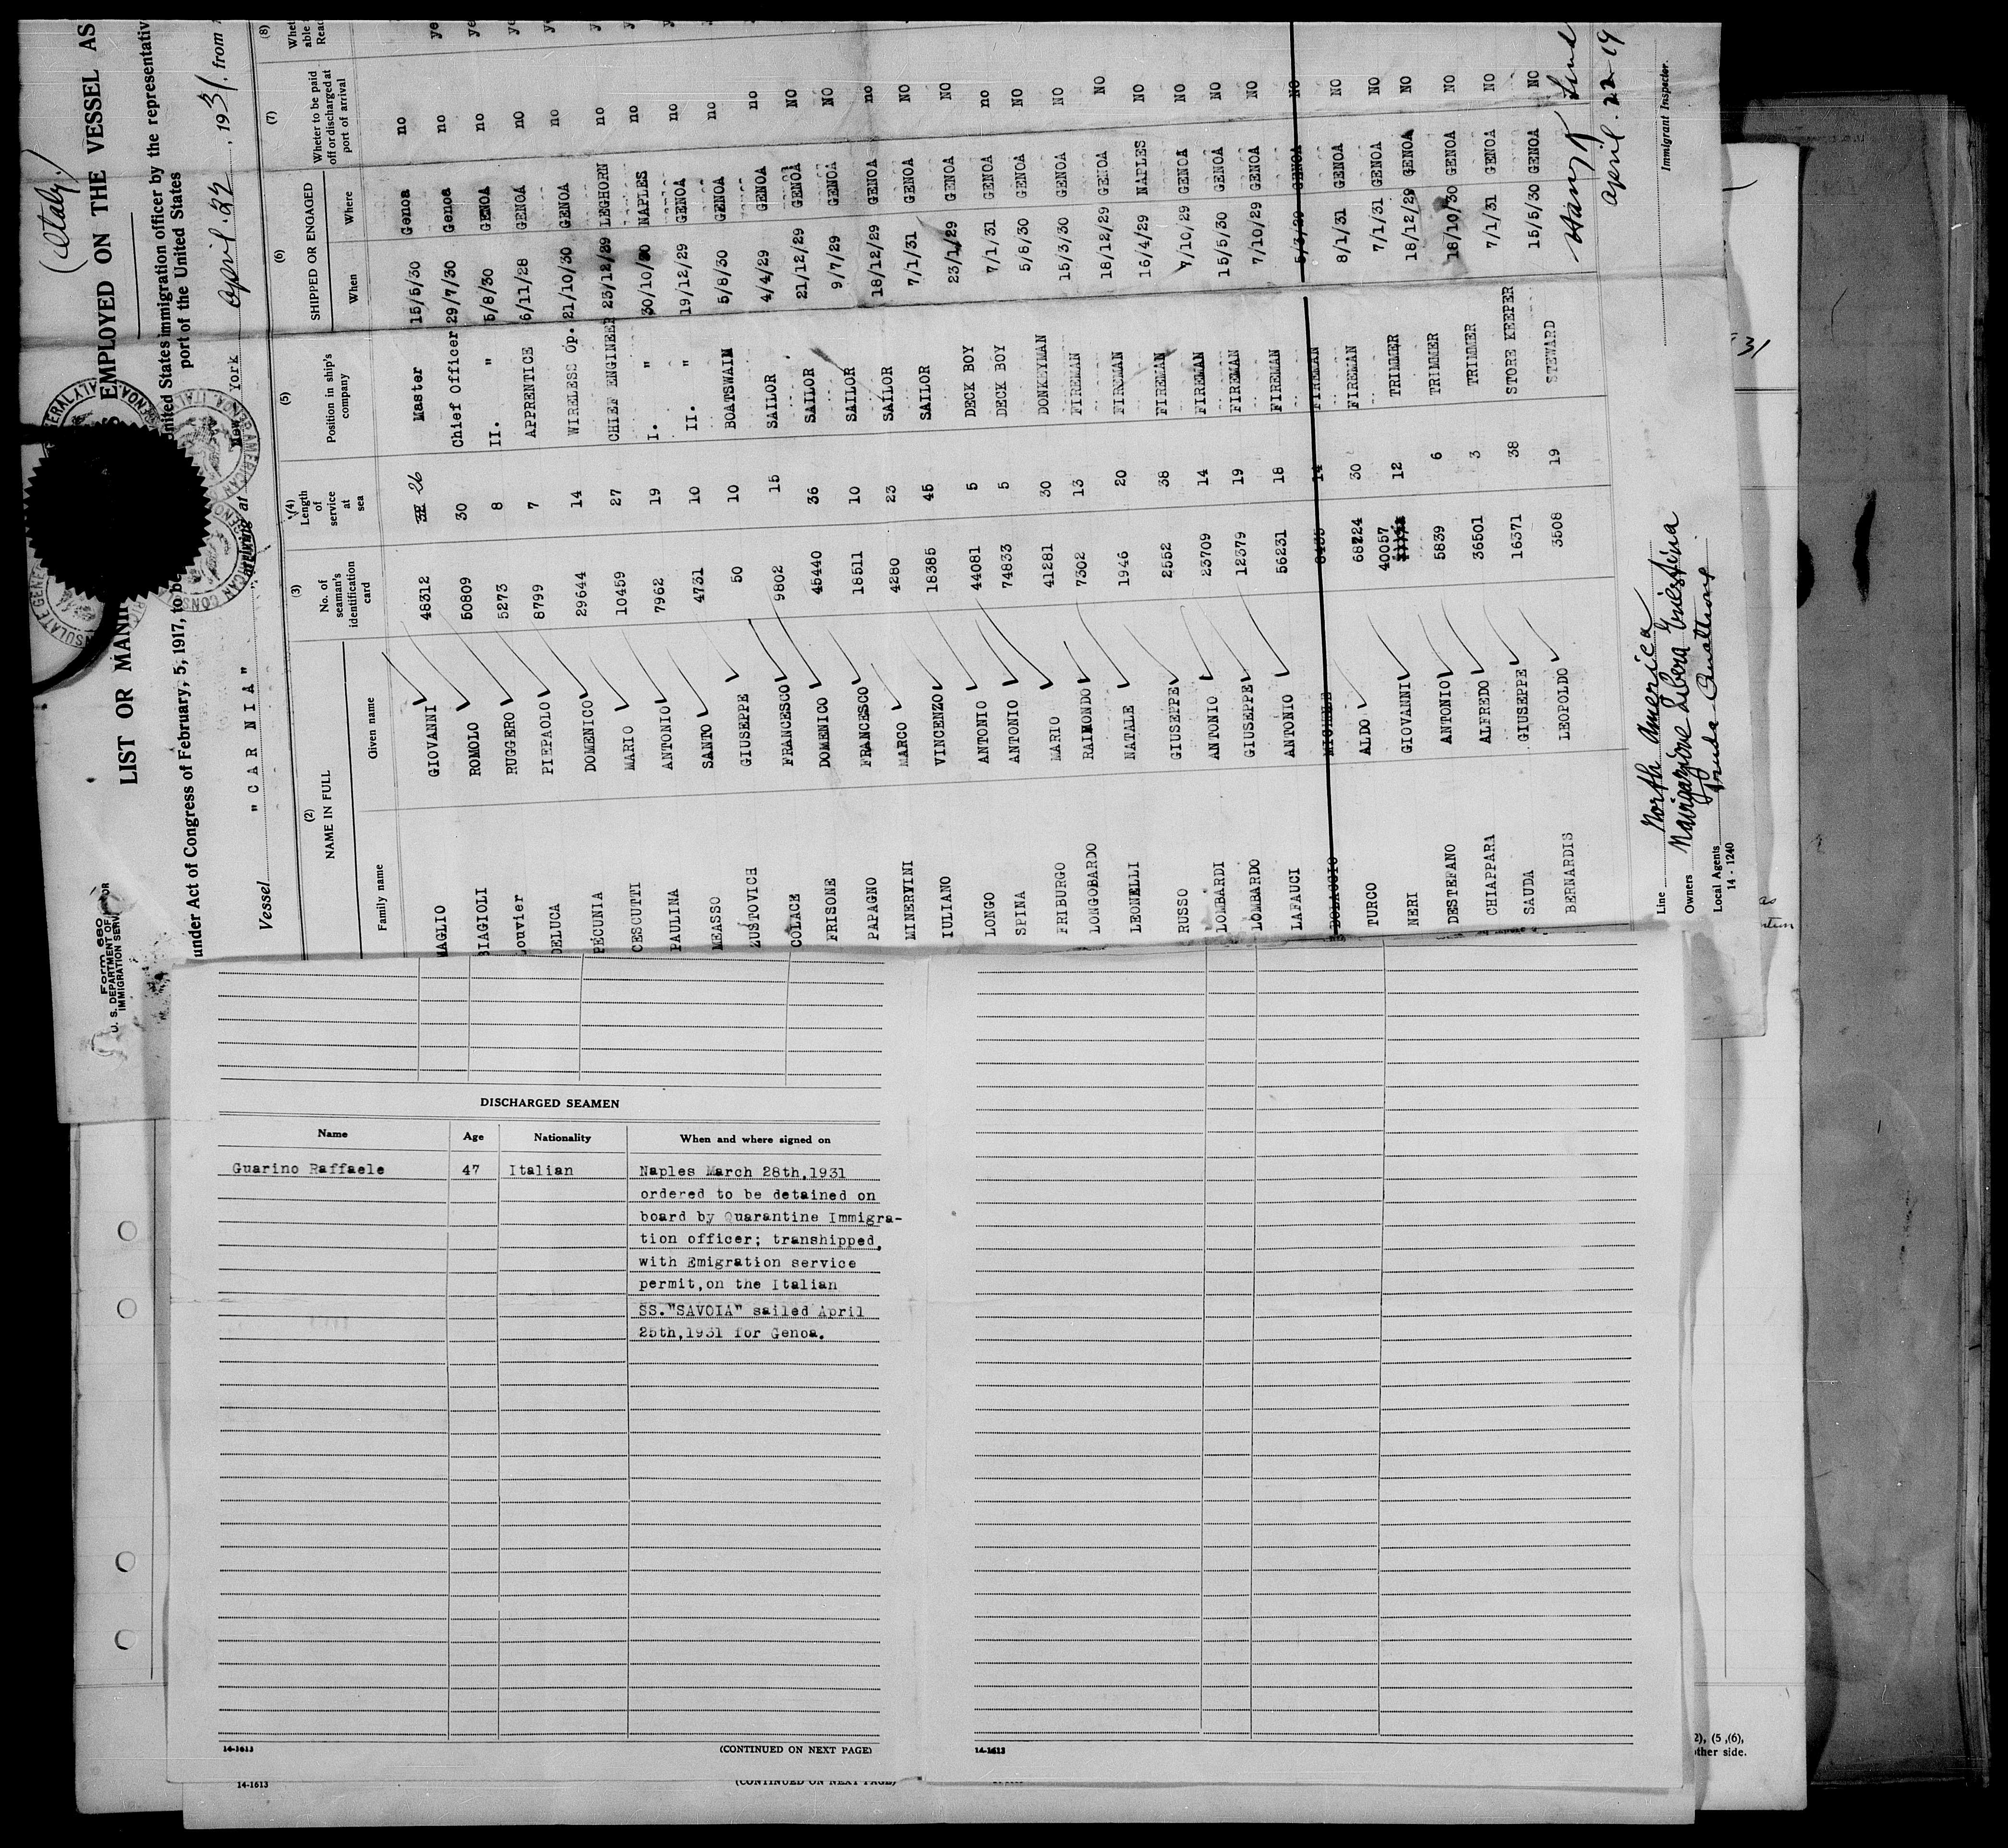 (Italy)
Form 680
U. S. DEPARTMENT OF
IMMIGRATION SERV
LIST OR MANI S EMPLOYED ON THE VESSEL AS
under Act of Congress of February, 5, 1917, to be United States immigration officer by the representativ
port of the United States
Vessel "CARNIA" arriving at New York April 22, 1931, from
(2) NAME IN FULL
Family name Given name
(3) No. of seaman's identification card
(4) Length of service at sea
(5) Position in ship's company
(6) SHIPPED OR ENGAGED
When Where
(7) Whether to be paid off or discharged at port of arrival
(8)
MAGLIO GIOVANNI 48312 26 Master 15/5/30 Genoa no
BIAGIOLI ROMOLO 50809 30 Chief Officer 29/7/30 Genoa no
Louvier RUGGERO 5273 8 II. " 5/8/30 GENOA no
DELUCA PIEPAOLO 8799 7 APPRENTICE 6/11/28 GENOA no
PECUNIA DOMENICO 29644 14 WIRELESS Op. 21/10/30 GENOA no
CESCUTTI MARIO 10459 27 CHIEF ENGINEER 23/12/29 LEGHORN no
PAULINA ANTONIO 7962 19 I. " 30/10/30 NAPLES no
MEASSO SANTO 4731 10 II. " 19/12/29 GENOA no
ZUSTOVICH GIUSEPPE 50 10 BOATSWAIN 5/8/30 GENOA no
COLACE FRANCESCO 9802 15 SAILOR 4/4/29 GENOA no
FRISONE DOMENICO 45440 36 SAILOR 21/12/29 GENOA NO
PAPAGNO FRANCESCO 18511 10 SAILOR 9/7/29 GENOA NO
MINERVINI MARCO 4280 23 SAILOR 18/12/29 GENOA no
IULIANO VINCENZO 18385 45 SAILOR 7/1/31 GENOA NO
LONGO ANTONIO 44081 5 DECK BOY 23/1/29 GENOA NO
SPINA ANTONIO 74833 5 DECK BOY 7/1/31 GENOA no
FRIBURGO MARIO 41281 30 DONKEYMAN 5/8/30 GENOA NO
LONGOBARDO RAIMONDO 7302 13 FIREMAN 15/3/30 GENOA NO
LEONELLI NATALE 1946 20 FIREMAN 18/12/29 GENOA NO
RUSSO GIUSEPPE 2552 38 FIREMAN 16/4/29 NAPLES NO
LOMBARDI ANTONIO 23709 14 FIREMAN 7/10/29 GENOA NO
LOMBARDO GIUSEPPE 12379 19 FIREMAN 15/5/30 GENOA NO
LAFAUCI ANTONIO 56231 18 FIREMAN 7/10/29 GENOA NO
MICHELE 14 FIREMAN 5/3/29 GENOA NO
TURCO ALDO 68224 30 FIREMAN 8/1/31 GENOA NO
NERI GIOVANNI 40057 12 TRIMMER 7/1/31 GENOA NO
DESTEFANO ANTONIO 5839 6 TRIMMER 18/12/29 GENOA NO
CHIAPPARA ALFREDO 36501 3 TRIMMER 18/10/30 GENOA NO
SAUDA GIUSEPPE 16371 38 STORE KEEPER 7/1/31 GENOA NO
BERNARDIS LEOPOLDO 3508 19 STEWARD 15/5/30 GENOA NO
April 22 19
Line North America
Owners Navigazione Libera Triestina
Local Agents
14-1240
Immigrant Inspector.
DISCHARGED SEAMEN
Name Age Nationality When and where signed on
Guarino Raffaele 47 Italian Naples March 28th,1931
ordered to be detained on
board by Quarantine Immigra-
tion officer; transhipped,
with Emigration service
permit,on the Italian
SS."SAVOIA" sailed April
25th,1931 for Genoa.
14-1613 (CONTINUED ON NEXT PAGE) 14-1613
2), (5 ,(6),
other side.
14-1613 (CONTINUED ON NEXT PAGE)